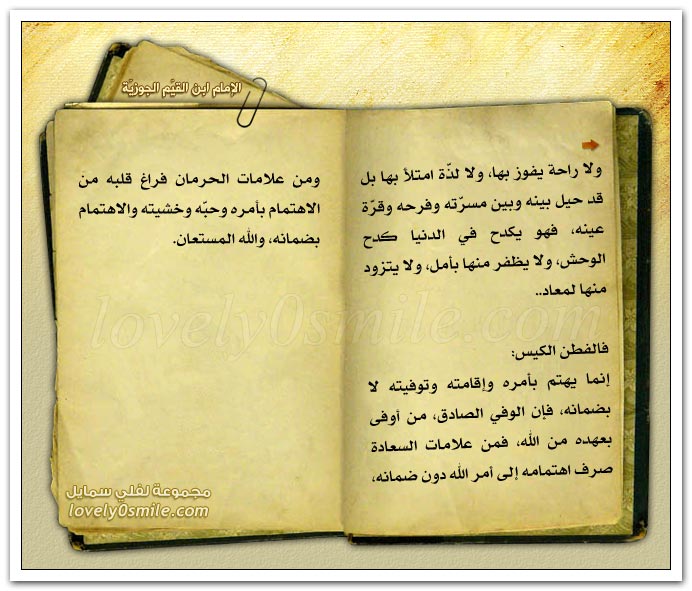 الإمام ابن القيَّم الجوزيَّة
ولا راحة يفوز بها، ولا لذّة امتلأ بها بل
قد حيل بينه وبين مسرّته وفرحه وقرّة
عينه، فهو يكدح في الدنيا كدح
الوحش، ولا يظفر منها بأمل، ولا يتزود
منها لمعاد..
فالفطن الكيس:
إنما يهتم بأمره وإقامته وتوفيته لا
بضمانه، فإن الوفي الصادق، من أوفى
بعهده من الله، فمن علامات السعادة
صرف اهتمامه إلى أمر الله دون ضمانه،
ومن علامات الحرمان فراغ قلبه من
الاهتمام بأمره وحبّه وخشيته والاهتمام
بضمانه، والله المستعان.
lovely0smile.com
مجموعة لفلي سمايل
lovely0smile.com